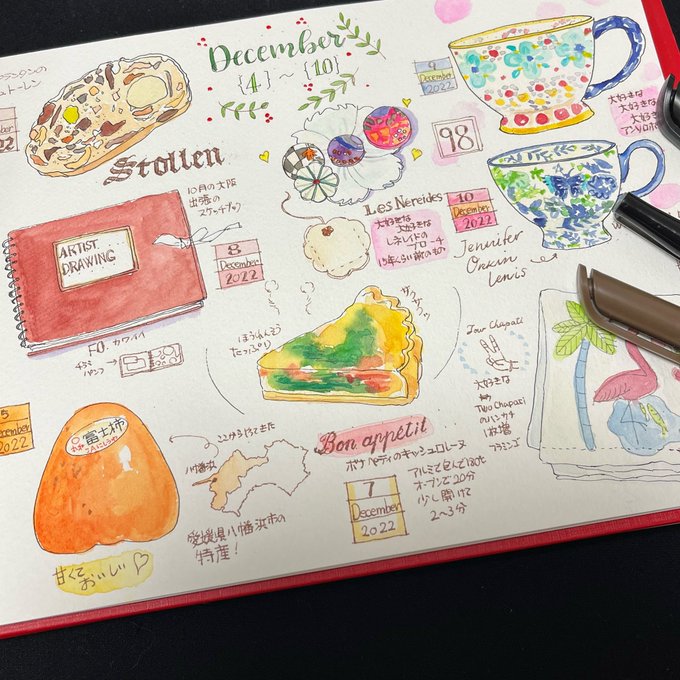 December
{4}~{10}
Stollen
2022
10月の大阪
出張の
スケッチブック
ARTIST
DRAWING
8
December
2022
F0. カワイイ
98
9
December
2022
大好きな
大好きな
Les Néréides
大好きな
大好きな
レネレイドの
ブローチ
15年くらい前のもの
10
December
2022
Jennifer
Orkin
Lewis
サクサク
ほうれんそう
たっぷり
Tour Chapati
大好きな
Two Chapati
のハンカチ
1枚増
フラミンゴ
Bon appétit
ボナペティのキッシュロレーヌ
アルミで包んで180℃
オーブンで20分
少し開けて
2〜3分
7
December
2022
5
December
2022
富士柿
JAにしうわ
ここからやってきた
八幡浜
愛媛県八幡浜市の
特産!
甘くて
おいしい♡